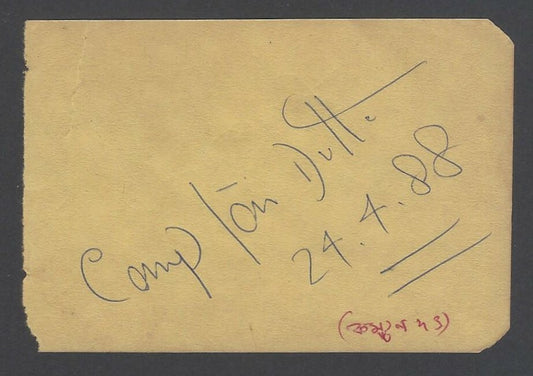 Compton Dutta
24.4.88
(কম্পটন দত্ত)